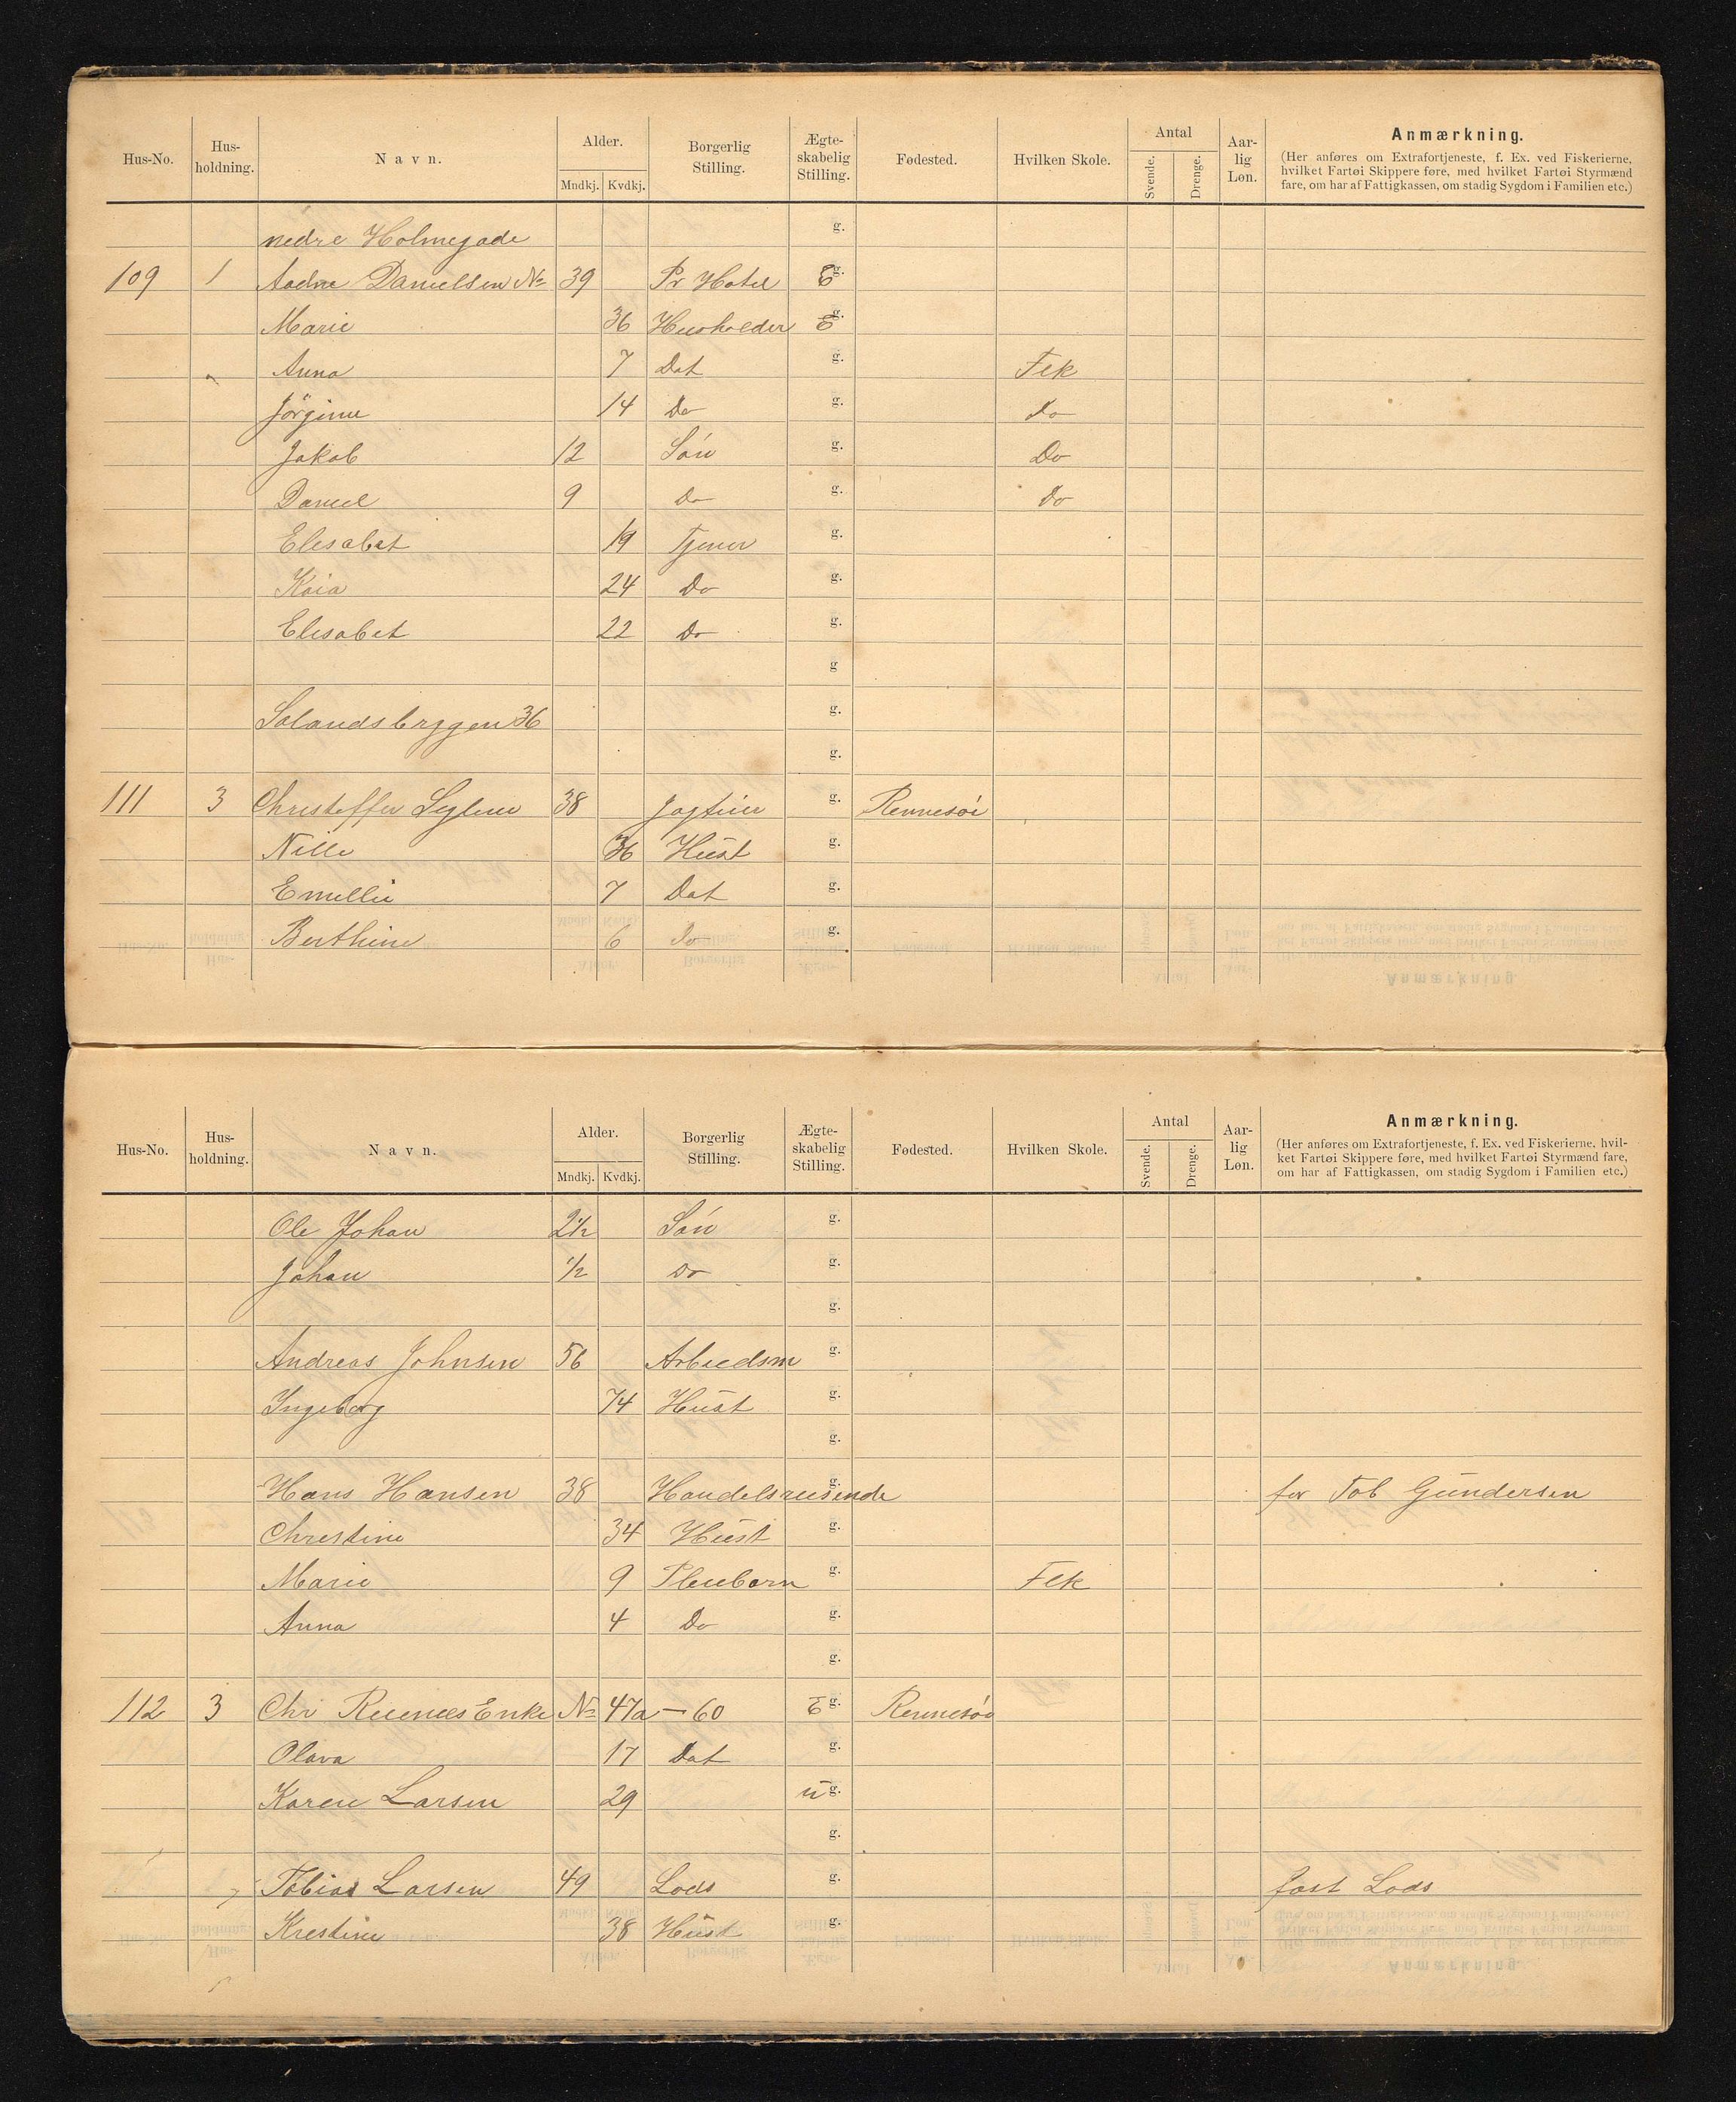 Hus-No. Hus-holdning. Navn. Alder. Mndkj. Kvdkj. Borgerlig Stilling. Ægte-skabelig Stilling. Fødested. Hvilken Skole. Antal Svende. Drenge. Aar-lig Løn. Anmærkning.
(Her anføres om Extrafortjeneste, f. Ex. ved Fiskerierne,
hvilket Fartøi Skippere føre, med hvilket Fartøi Styrmænd
fare, om har af Fattigkassen, om stadig Sygdom i Familien etc.)
nedre Holmegade g.
109 1 Danielsen No 39 Pr Hotel E g.
Marie 36 Husholder E g.
Anna 7 Dat g. Flk
Jörgine 14 Do g. Do
Jakob 12 Sön g. Do
Daniel 9 Do g. Do
Elesabet 19 Tjener g.
Kaia 24 Do g.
Elisabet 22 Do g.
g
Solandsbryggen 36 g.
g.
111 3 Christoffer 38 g. Rennesöe
Nille 36 Hust g.
Emellie 7 Dat g.
Berthine 6 Do g.
Hus-No. Hus-holdning. Navn. Alder. Mndkj. Kvdkj. Borgerlig Stilling. Ægte-skabelig Stilling. Fødested. Hvilken Skole. Antal Svende. Drenge. Aar-lig Løn. Anmærkning.
(Her anføres om Extrafortjeneste, f. Ex. ved Fiskerierne. hvil-
ket Fartøi Skippere føre, med hvilket Fartøi Styrmænd fare,
om har af Fattigkassen, om stadig Sygdom i Familien etc.)
Ole Johan 2½ Sön g.
Johan ½ Do g.
g.
Andreas Johnsen 56 Arbiedsm g.
Ingeborg 74 Hust g.
g.
Hans Hansen 38 Handelsreisende g. for Tob Gundersen
Christine 34 Hust g.
Marie 9 Pleiebarn g. Flk
Anna 4 Do g.
g.
112 3 Chr Enke No 47a — 60 E g. Rennesöe
Olava 17 Dat g.
Karen Larsen 29 u g.
g.
Tobias Larsen 49 Lods g. fast Lods
Krestine 38 Hust